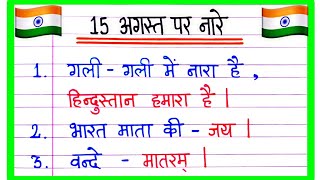 15 अगस्त पर नारे
1. गली - गली में नारा है ,
हिन्दुस्तान हमारा है |
2. भारत माता की - जय |
3. वन्दे - मातरम् |